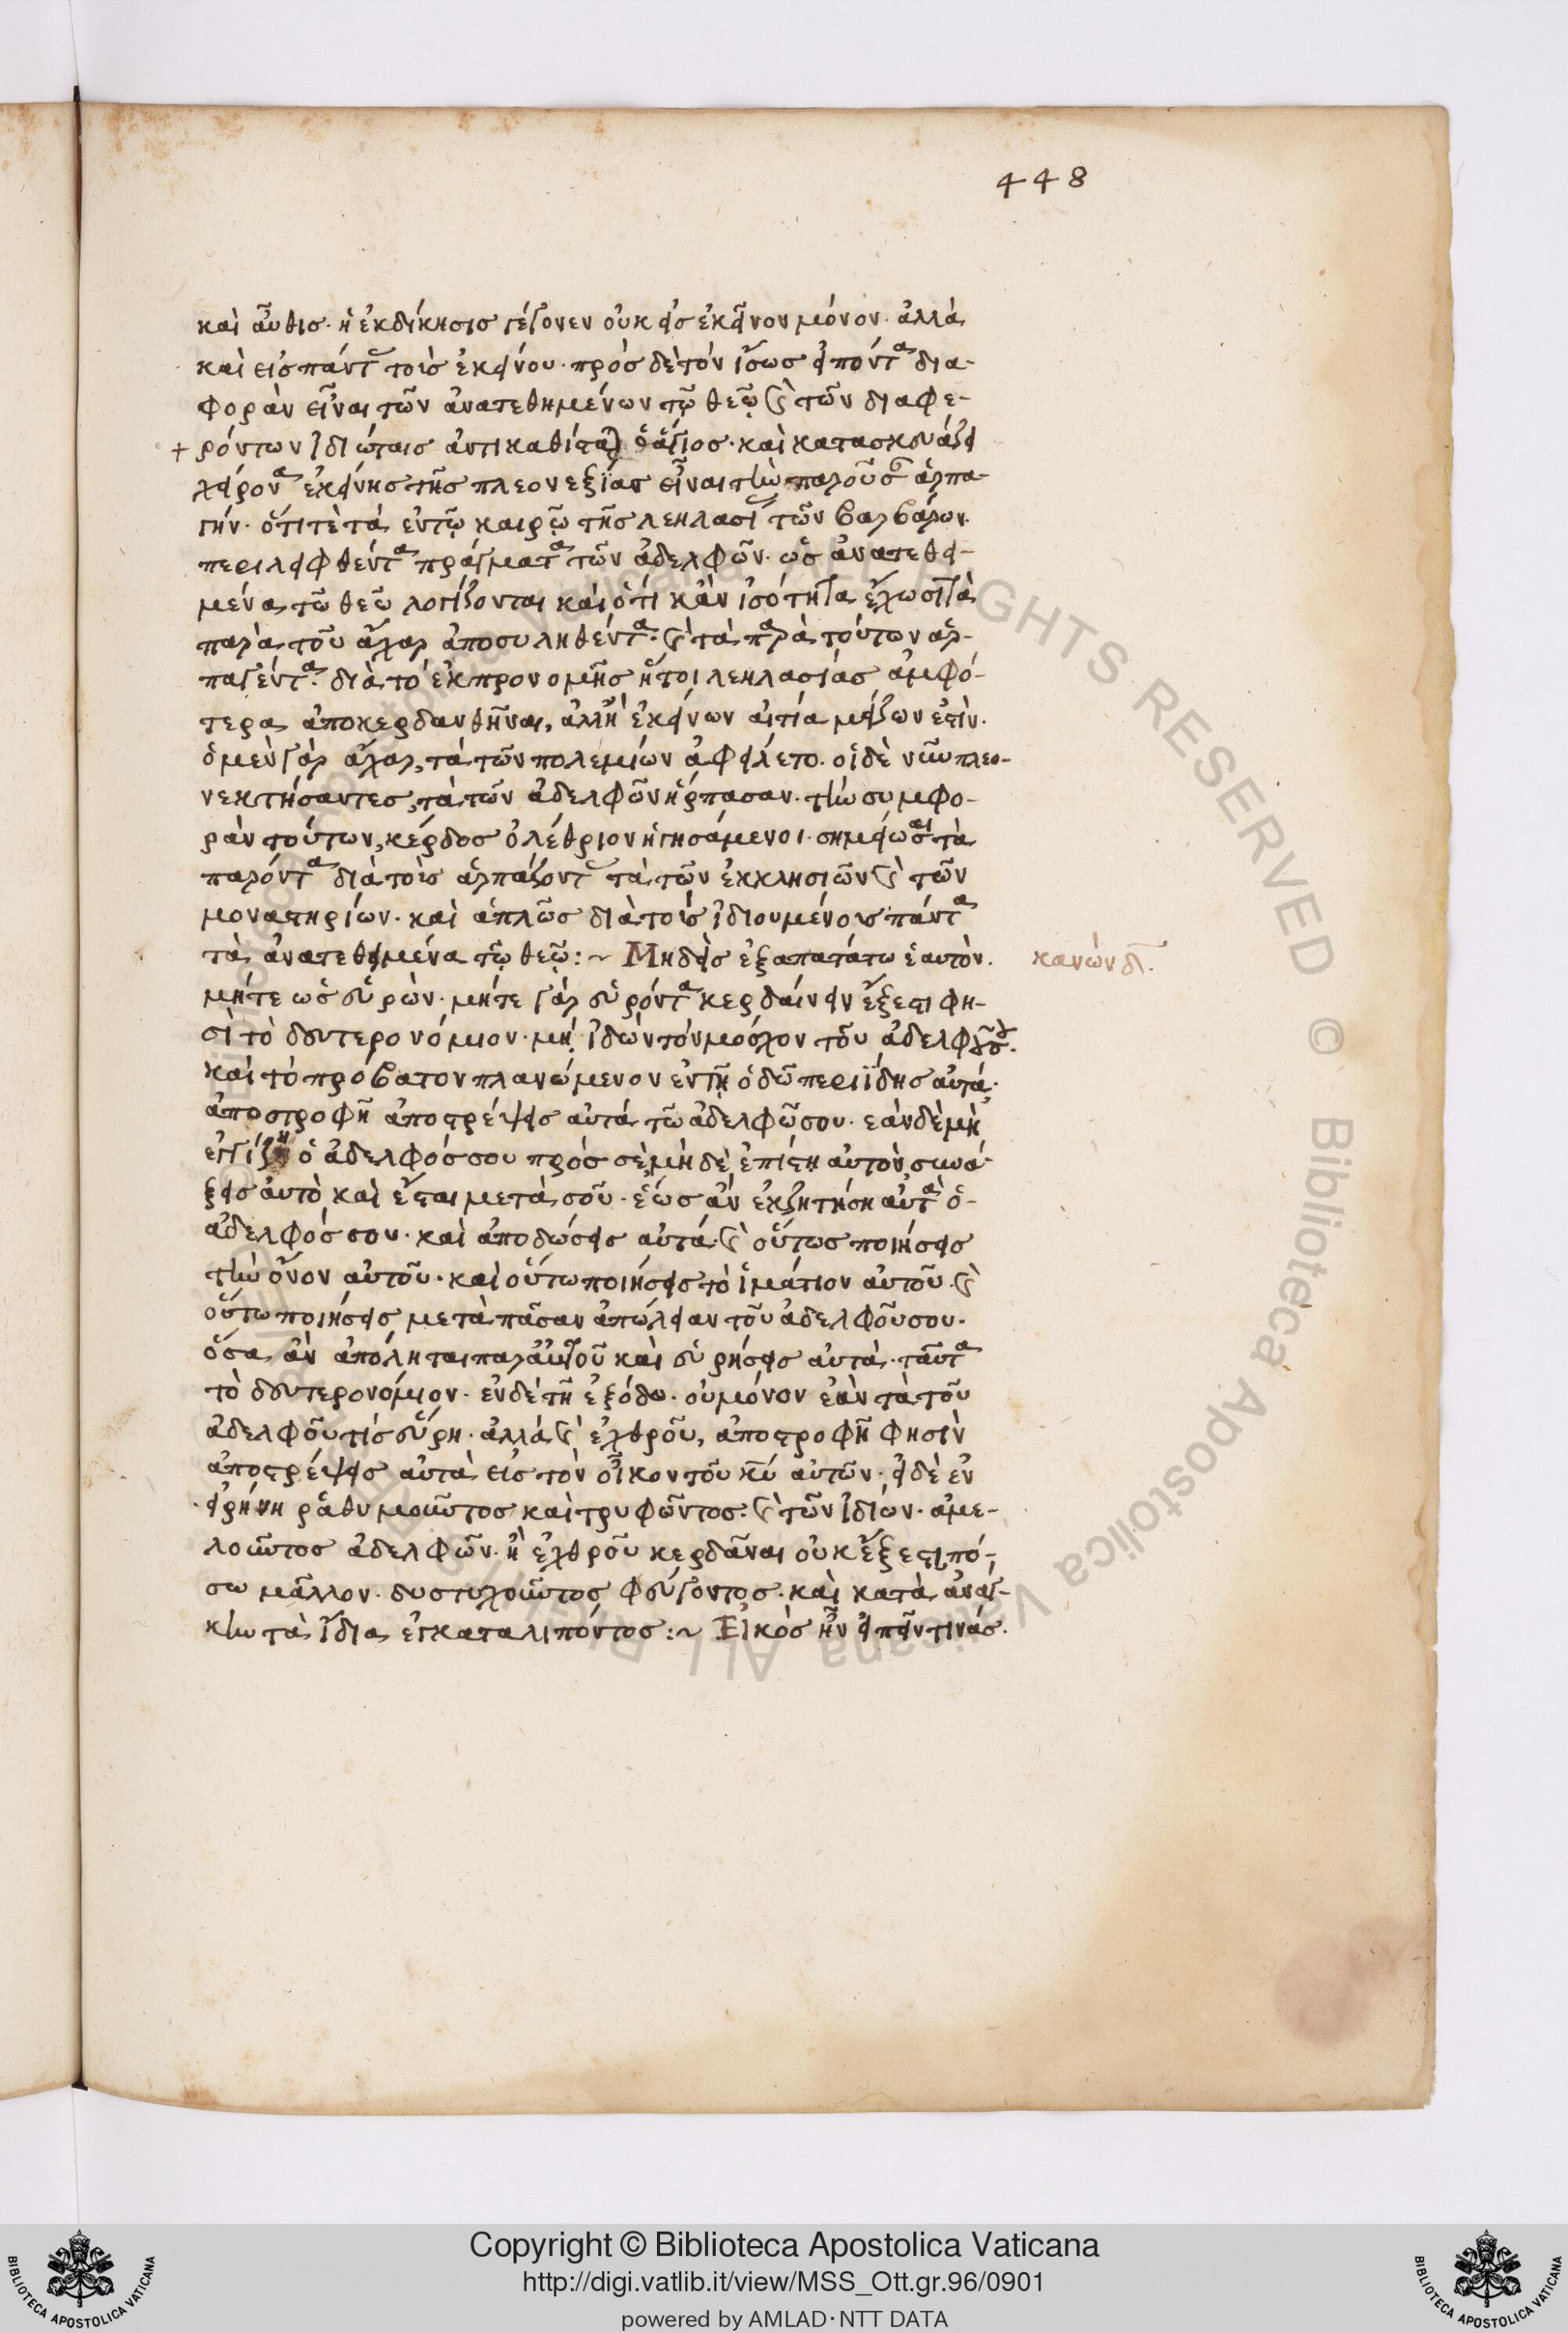 448
καὶ αὖθισ· ἡ ἐκδίκησισ γέγονεν οὐκ εἰσ ἐκεῖνον μόνον· ἀλλὰ
καὶ εἰσ παντ τοὶσ ἐκείνου· πρὸσ δὲ τὸν ἴσωσ εἰπόντα δια-
φορὰν εἶναι τῶν ἀνατεθημένων τῷ θεῷ καὶ τῶν διαφε-
+ ρόντων ἰδιώταισ ἀντικαθίσταται ὁ ἅγιοσ· καὶ κατασκευάζει
χείρονα ἐκείνησ τῆσ πλεονεξίασ εἶναι τὴν παροῦσαν ἁρπα-
γήν· ὅτι τὲ τὰ ἐν τῷ καιρῷ τῆσ λεηλασί τῶν βαρβάρων
περιλειφθέντα πράγματα τῶν ἀδελφῶν· ὡσ ἀνατεθει-
μένα τῶ θεῶ λογίζονται καὶ ὅτι κἂν ἰσότητα ἔχωσι τὰ
παρὰ τοῦ ἄχαρ ἀποσυληθέντα· καὶ τὰ παρὰ τούτων ἁρ-
παγέντα· διὰ τὸ ἐκ προνομῆσ ἤτοι λεηλασίασ ἀμφό-
τερα ἀποκερδανθῆναι, ἀλλ' ἡ ἐκείνων αἰτία μείζων ἐστὶν·
ὁ μὲν γὰρ ἄχαρ, τὰ τῶν πολεμίων ἀφείλετο· οἱ δὲ νῦν πλεο-
νεκτήσαντεσ, τὰ τῶν ἀδελφῶν ἥρπασαν· τὴν συμφο-
ρὰν τούτων, κέρδοσ ὀλέθριον ἡγησάμενοι· σημείωσαι τὰ
παρόντα διὰ τοὺσ ἁρπάζοντ τὰ τῶν ἐκκλησιῶν καὶ τῶν
μοναστηρίων· καὶ ἁπλῶσ διὰ τοὺσ ἰδιουμένουσ πάντα
τὰ ἀνατεθειμένα τῷ θεῷ:~ Μηδεὶσ ἐξαπατάτω ἑαυτὸν·
κανὼν δ
μήτε ὡσ εὑρὼν· μήτε γὰρ εὑρόντα κερδαίνειν ἔξεστι φη-
σὶ τὸ δευτερονόμιον· μὴ ἰδὼν τὸν μόσχον τοῦ ἀδελφοῦ σου·
καὶ τὸ πρόβατον πλανώμενον ἐν τῇ ὁδῶ περιΐδησ αὐτά·
ἀποστροφῆ ἀποστρέψεισ αὐτὰ τῶ ἀδελφῶ σου· ἐὰν δὲ μὴ
ἐγγίζη ὁ ἀδελφόσ σου πρόσ σὲ μὴ δὲ ἐπίστη αὐτὸν, συνά-
ξεισ αὐτὸ καὶ ἔσται μετὰ σοῦ· ἕωσ ἂν ἐκζητήση αὐτὰ ὁ-
ἀδελφόσ σου· καὶ ἀποδώσεισ αὐτά· καὶ οὕτωσ ποιήσεισ
τὴν ὄνον αὐτοῦ· καὶ οὕτω ποιήσεισ τὸ ἱμάτιον αὐτοῦ· καὶ
οὕτω ποιήσεισ μετὰ πᾶσαν ἀπώλειαν τοῦ ἀδελφοῦ σου·
ὅσα ἂν ἀπόληται παρ' αὐτοῦ καὶ εὑρήσεισ αὐτά· ταῦτα
τὸ δευτερονόμιον· ἐν δὲ τῆ ἐξόδω· οὐ μόνον ἐὰν τὰ τοῦ
ἀδελφοῦ τίσ εὕρη· ἀλλὰ καὶ ἐχθροῦ, ἀποστροφῆ φησὶν
ἀποστρέψεισ αὐτὰ εἰσ τὸν οἶκον τοῦ κυ αὐτῶν· εἰ δὲ ἐν
εἰρήνη ῥαθυμοῦντοσ καὶ τρυφῶντοσ· καὶ τῶν ἰδίων· ἀμε-
λοῦντοσ ἀδελφῶν· ἢ ἐχθροῦ κερδᾶναι οὐκ ἔξεστι, πό-
σω μᾶλλον· δυστυχοῦντοσ φεύγοντοσ· καὶ κατὰ ἀνάγ-
κην τὰ ἴδια ἐγκαταλιπόντοσ:~ Εἰκὸσ ἦν εἰπεῖν τινάσ·
Copyright © Biblioteca Apostolica Vaticana
http://digi.vatlib.it/view/MSS_Ott.gr.96/0901
powered by AMLAD·NTT DATA